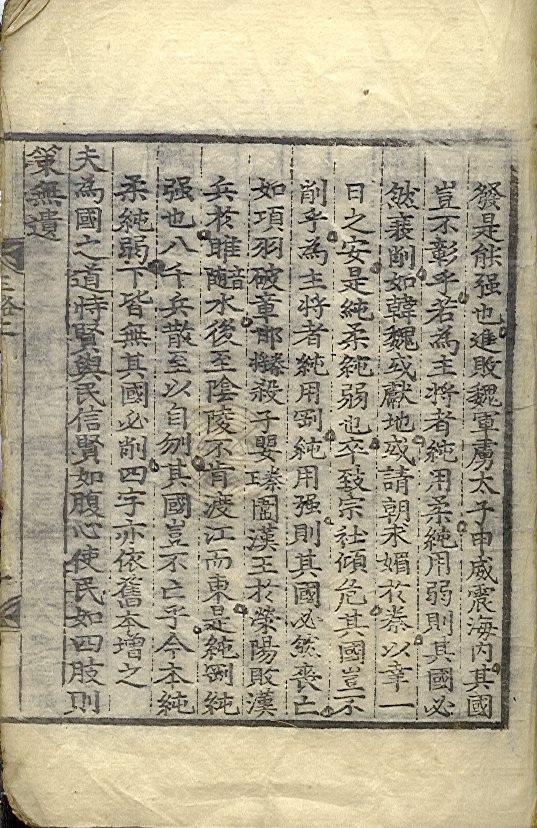 發是能强也進敗魏軍虜太子申威震海内其國
豈不彰乎若為主將者純用柔純用弱則其國必
然衰削如韓魏或獻地或請朝求媚於秦以幸一
日之安是純柔純弱也卒致宗社傾危其國豈不
削乎為主將者純用剛純用强則其國必然喪亡
如項羽破章邯殺子嬰圍漢王於滎陽敗漢
兵於睢音隨水後至陰陵不肯渡江而東是純剛純
强也八千兵散至以自刎其國豈不亡乎今本純
柔純弱下皆無其國必削四字亦依舊本增之
夫為國之道恃賢與民信賢如腹心使民如四肢則
策無遺
三略上